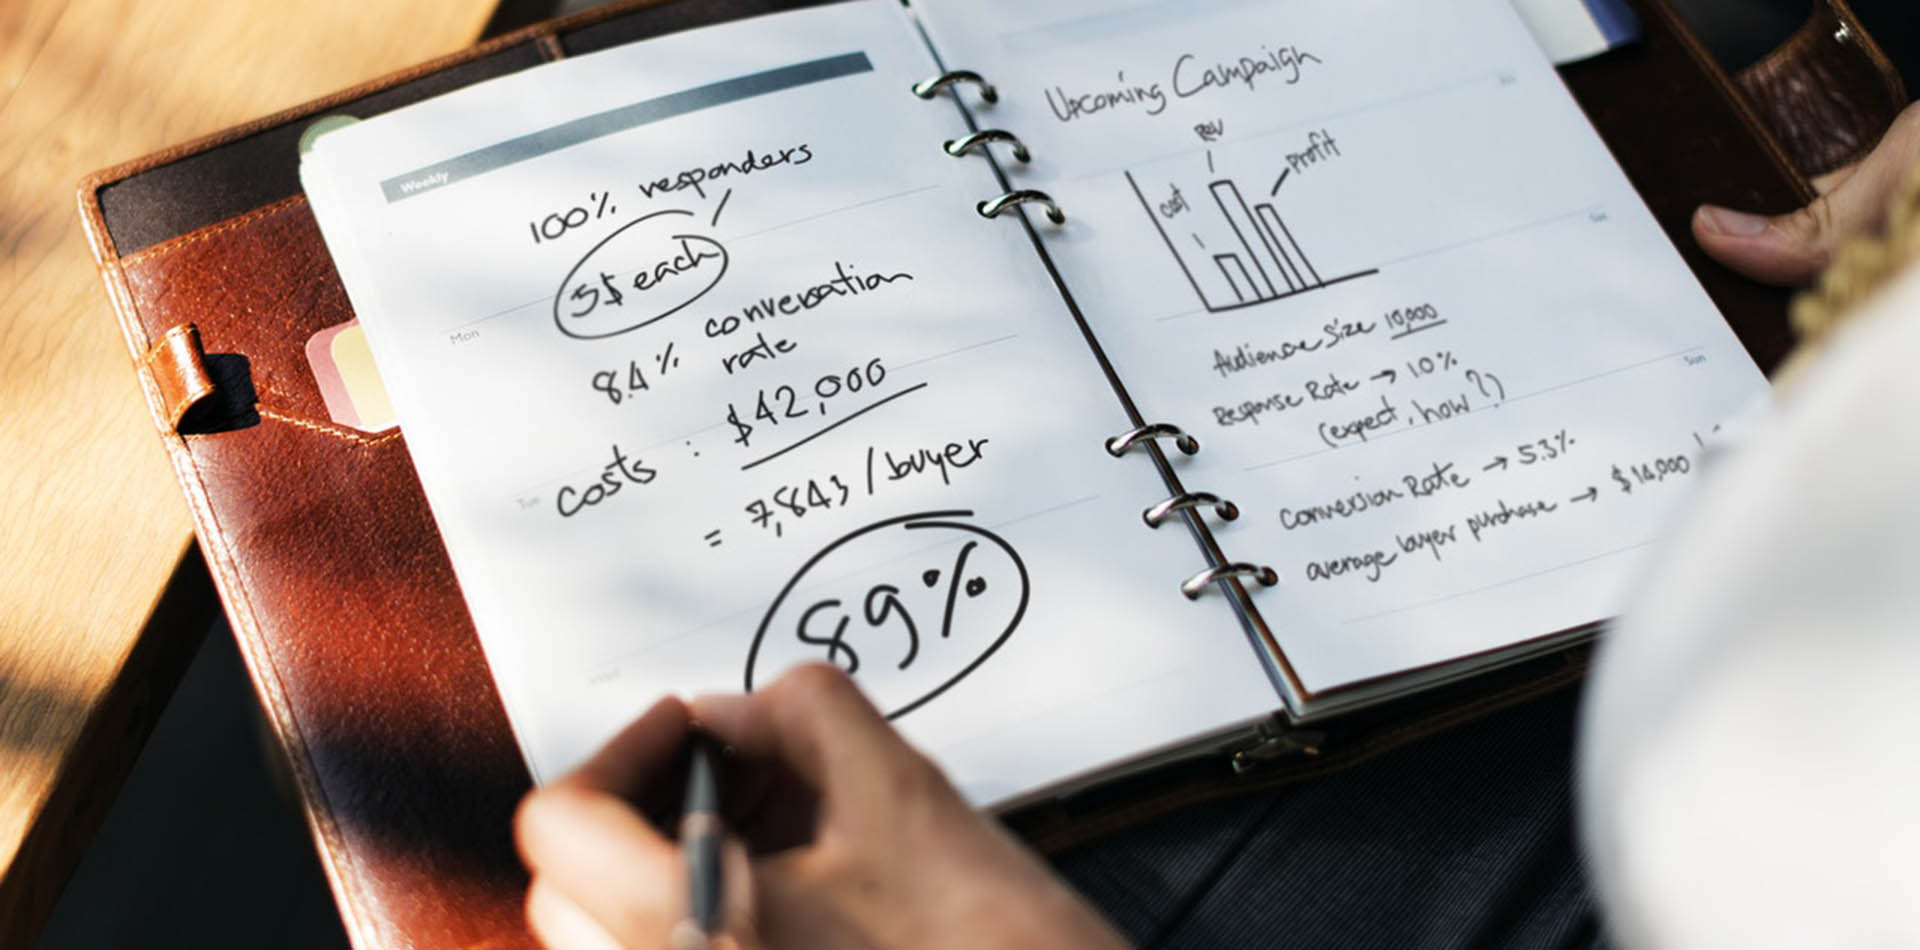 Weekly
100% responders
5$ each
8.4% conversation
rate
Mon
costs : $42,000
Tue
= 7,843 / buyer
89%
Upcoming Campaign
Rev
Profit
Cost
Audience Size 10,000
Response Rate → 10%
(expect, how?)
Sun
Conversion Rate → 5.3%
average buyer purchase → $14,000